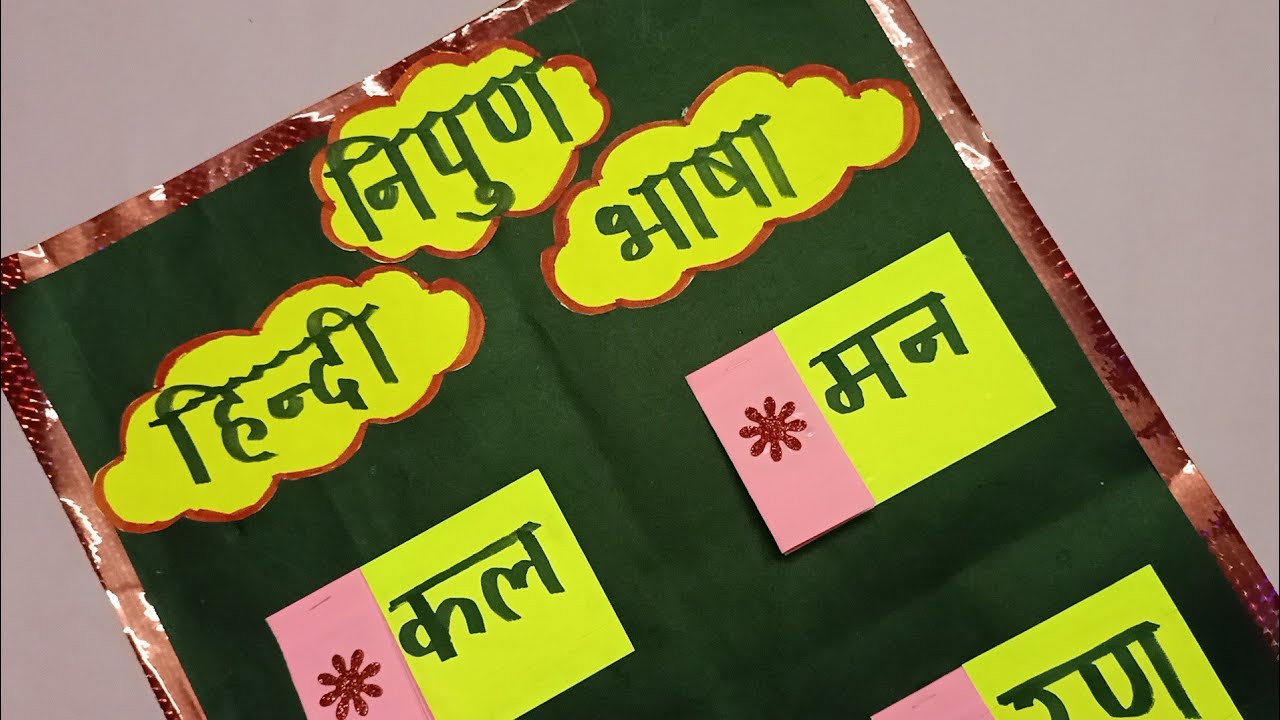 निपुण
भाषा
हिन्दी
मन
कल